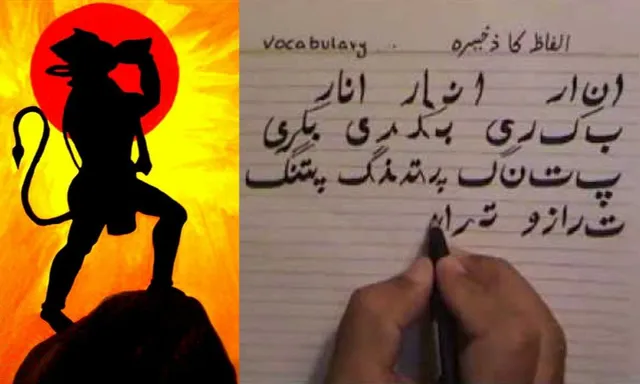 Vocabulary الفاظ کا ذخیرہ
ا ن ا ر ا نـ ا ر انار
ب ک ر ی بـ کـ ر ی بکری
پ ت ن گ پـ تـ نـ گ پتنگ
ت ر ا ز و تـ ر ا